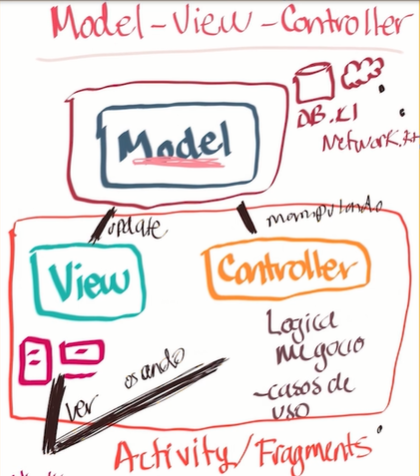 Model-View-Controller
DB.kt
Network.kt
Model
update
manipulando
View
Controller
Logica
negocio
-casos de
uso
usando
ver
Activity/Fragments